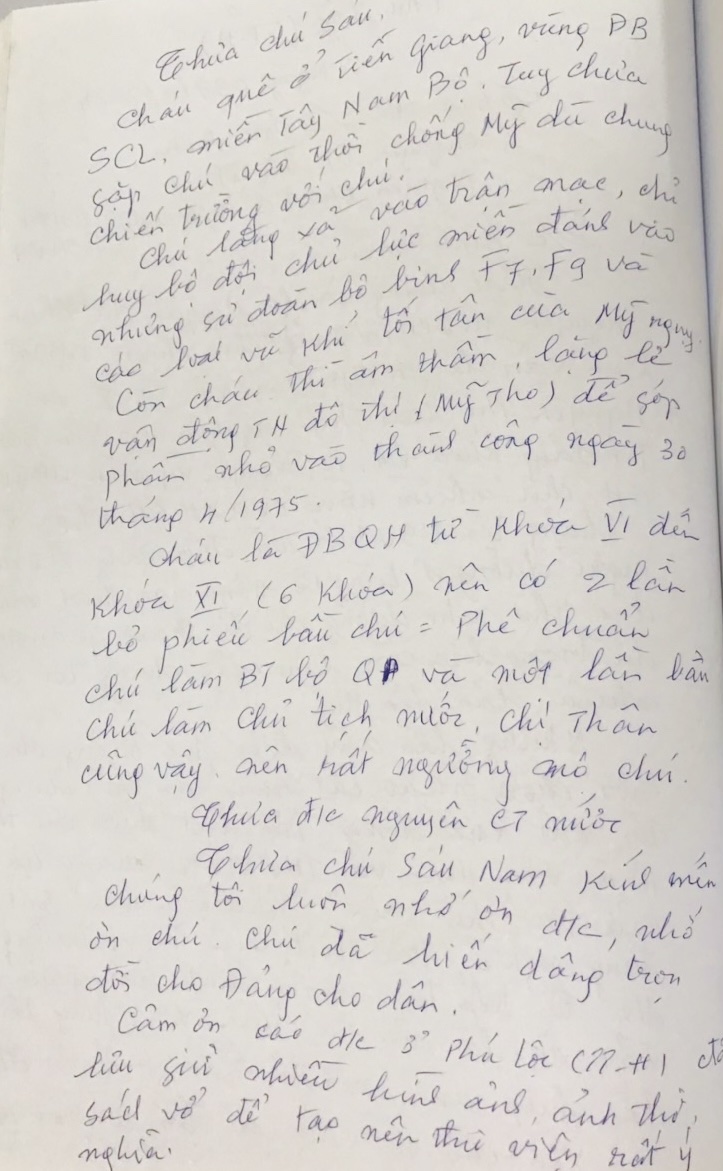 Thưa chú Sáu.
Cháu quê ở Tiền Giang, vùng ĐB
SCL, miền Tây Nam Bộ. Tuy chưa
gặp chú vào thời chống Mỹ dù chung
chiến trường với chú.
Chú lăng xả vào trận mạc, chỉ
huy bộ đội chủ lực miền đánh vào
những sư đoàn bộ binh F7, F9 và
các loại vũ khí tối tân của Mỹ ngụy.
Còn cháu thì âm thầm, lặng lẽ
vận động TH đô thị (Mỹ Tho) để góp
phần nhỏ vào thành công ngày 30
tháng 4/1975.
Cháu là ĐBQH từ khóa VI đến
khóa XI (6 khóa) nên có 2 lần
bỏ phiếu bầu chú = Phê chuẩn
chú làm BT bộ QP và một lần bầu
chú làm chủ tịch nước, chị Thân
cũng vậy nên rất ngưỡng mộ chú.
Thưa đ/c nguyên CT nước
Thưa chú Sáu Nam kính mến
chúng tôi luôn nhớ ơn đ/c, nhớ
ơn chú. Chú đã hiến dâng trọn
đời cho Đảng cho dân.
Cảm ơn các đ/c ở Phú Lộc (TT-H) đã
lưu giữ nhiều hình ảnh, ảnh thờ,
sách vở để tạo nên thư viện rất ý
nghĩa.